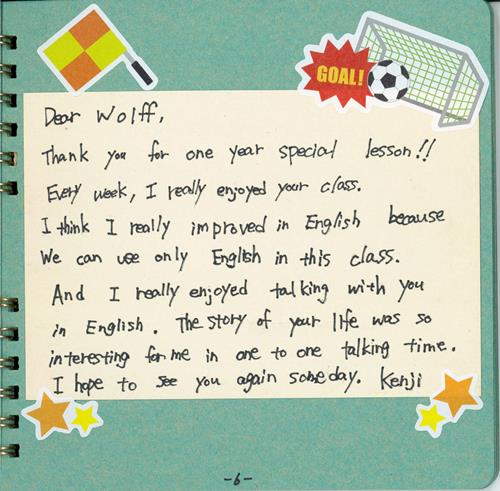 GOAL!
Dear Wolff,
Thank you for one year special lesson!!
Every week, I really enjoyed your class.
I think I really improved in English because
We can use only English in this class.
And I really enjoyed talking with you
in English. The story of your life was so
interesting for me in one to one talking time.
I hope to see you again someday. Kenji
-6-